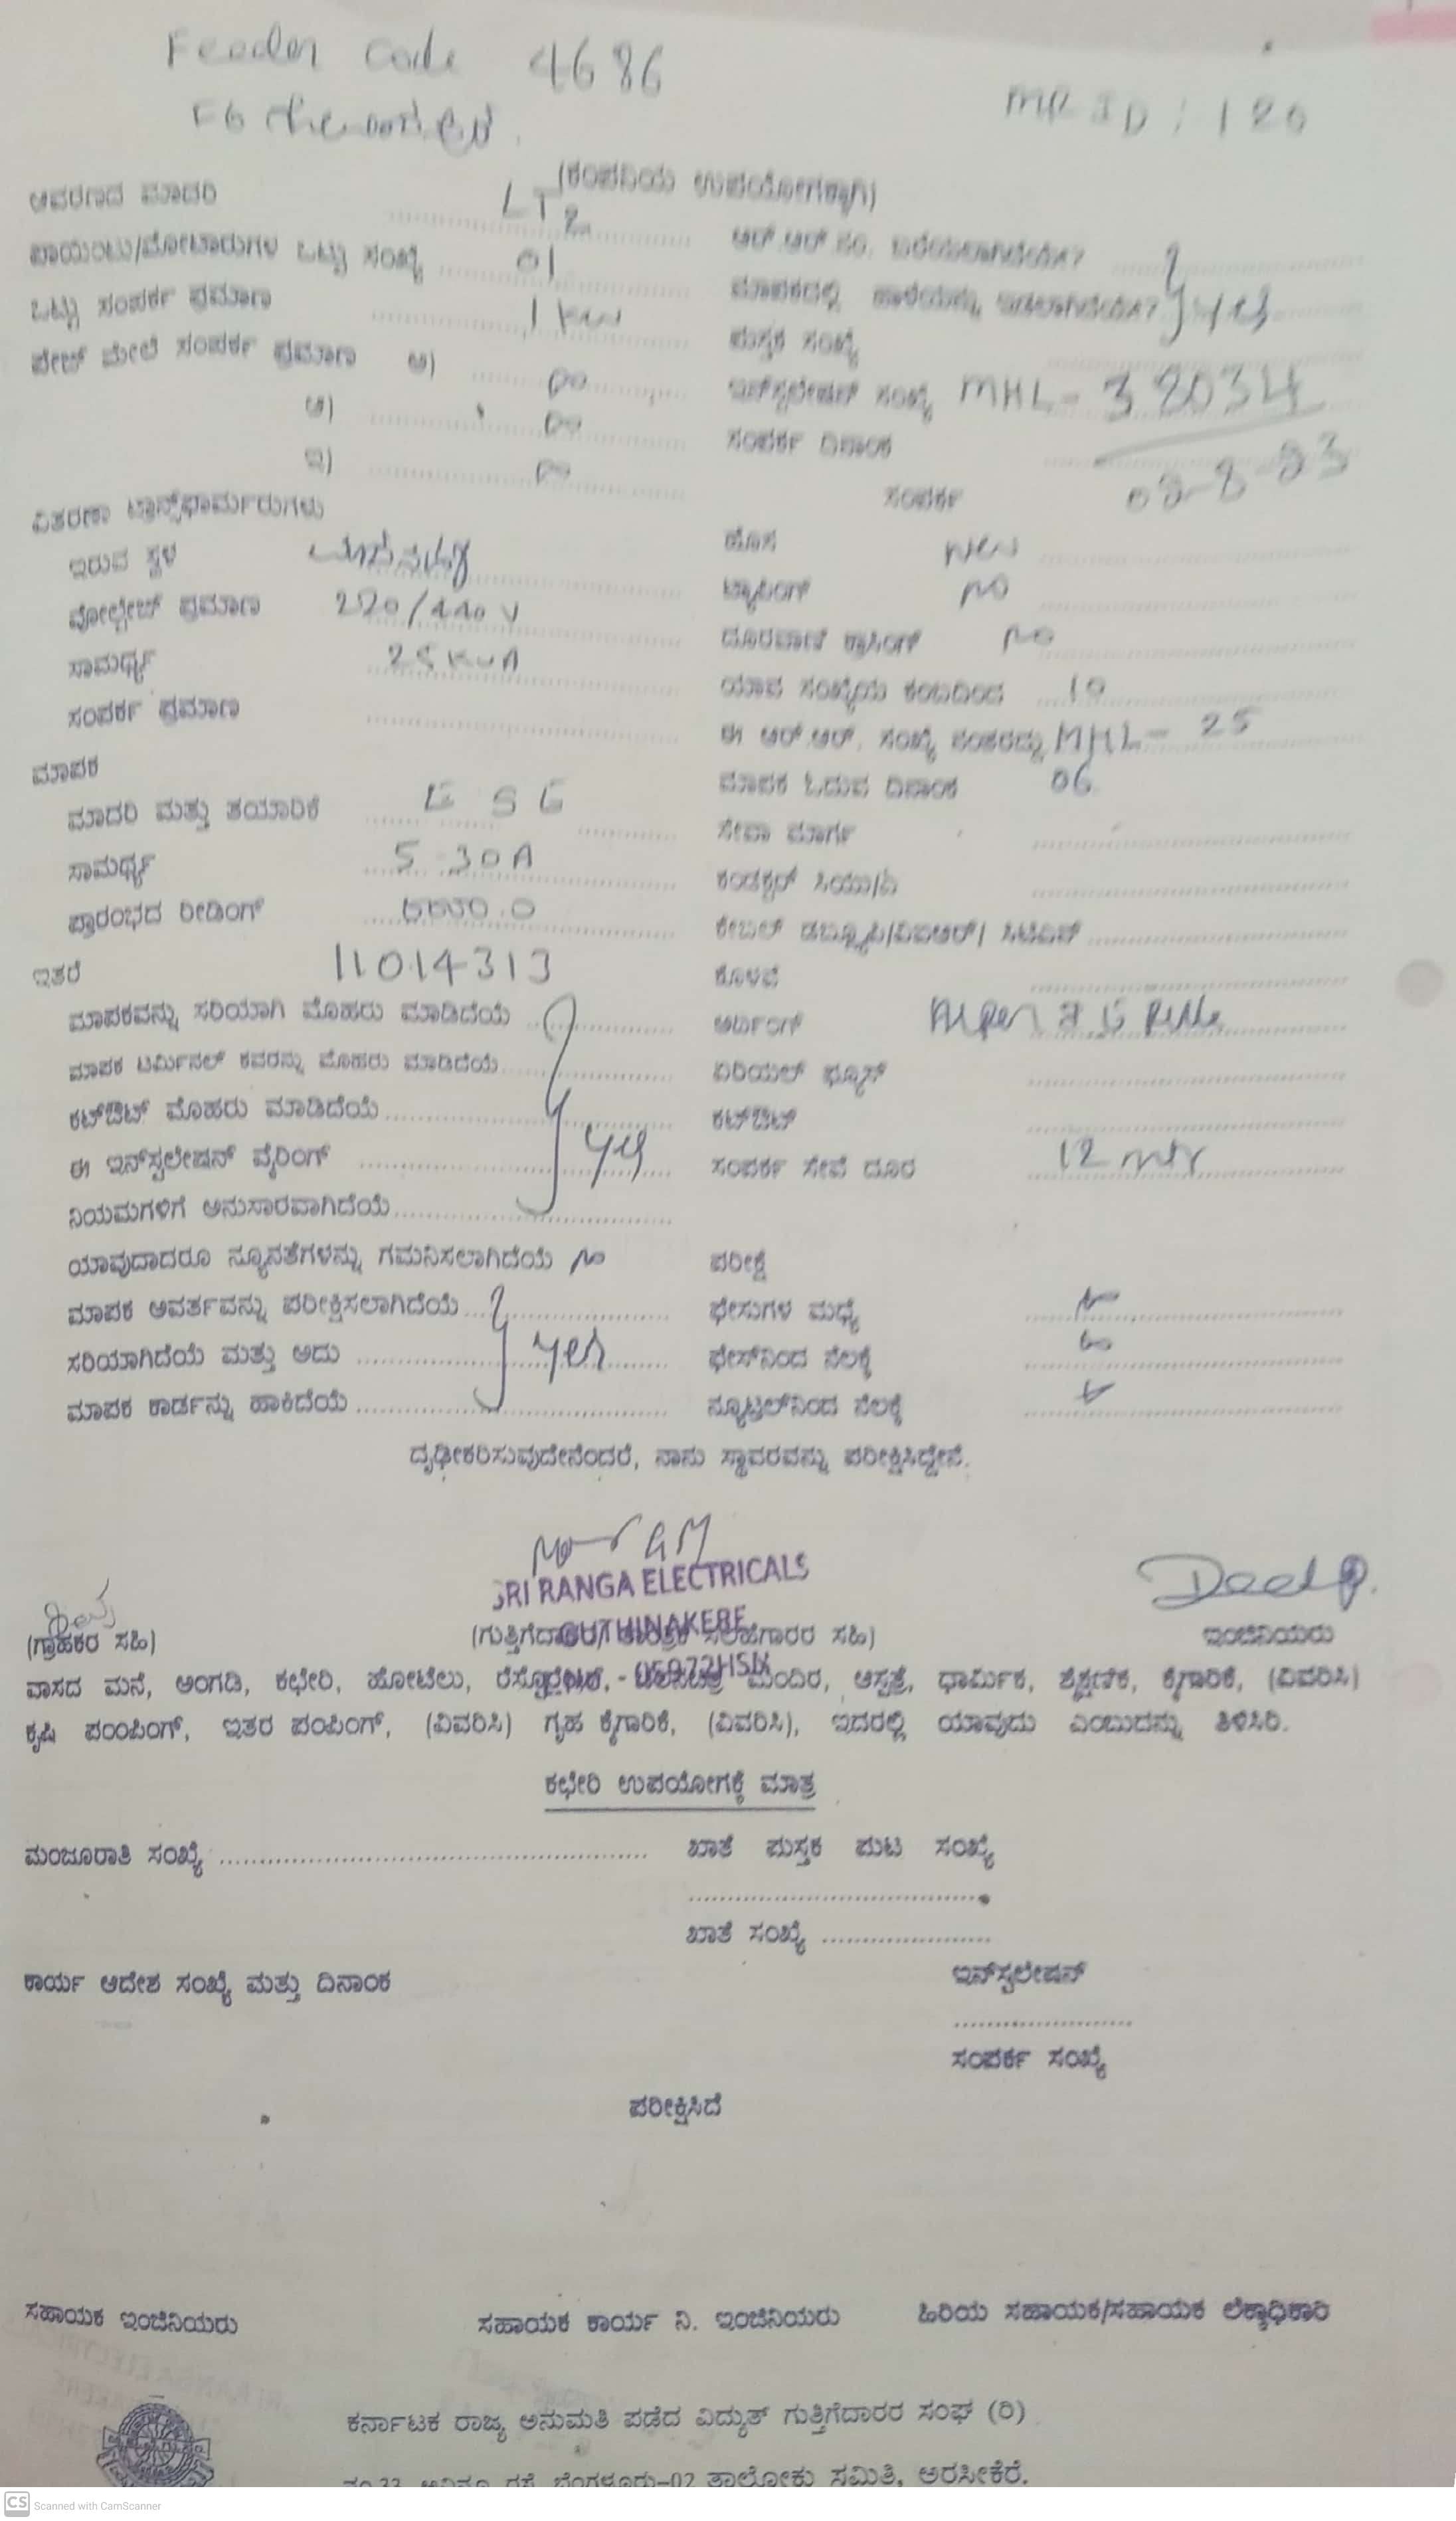 Feeder Code 4686
F6
MR ID : 120
(ಕಂಪನಿಯ ಉಪಯೋಗಕ್ಕಾಗಿ)
ಆವರಣದ ಮಾದರಿ LT2
ಪಾಯಿಂಟು/ಮೋಟಾರುಗಳ ಒಟ್ಟು ಸಂಖ್ಯೆ 01
ಒಟ್ಟು ಸಂಪರ್ಕ ಪ್ರಮಾಣ 1 KW
ಪೇಟ್ ಮೇಲೆ ಸಂಪರ್ಕ ಪ್ರಮಾಣ ಅ)
ಆ)
ಇ)
ವಿತರಣಾ ಟ್ರಾನ್ಸ್‌ಫಾರ್ಮರುಗಳು
ಇರುವ ಸ್ಥಳ
ವೋಲ್ಟೇಜ್ ಪ್ರಮಾಣ 220/440 V
ಸಾಮರ್ಥ್ಯ 25 KVA
ಸಂಪರ್ಕ ಪ್ರಮಾಣ
ಮಾಪಕ
ಮಾದರಿ ಮತ್ತು ತಯಾರಿಕೆ
ಸಾಮರ್ಥ್ಯ 5-30A
ಪ್ರಾರಂಭದ ರೀಡಿಂಗ್
ಇತರೆ 11014313
ಮಾಪಕವನ್ನು ಸರಿಯಾಗಿ ಮೊಹರು ಮಾಡಿದೆಯೆ
ಮಾಪಕ ಟರ್ಮಿನಲ್ ಕವರನ್ನು ಮೊಹರು ಮಾಡಿದೆಯೆ
ಕಟ್‌ಔಟ್ ಮೊಹರು ಮಾಡಿದೆಯೆ
ಈ ಇನ್‌ಸ್ಟಲೇಷನ್ ವೈರಿಂಗ್ yes
ನಿಯಮಗಳಿಗೆ ಅನುಸಾರವಾಗಿದೆಯೆ
ಯಾವುದಾದರೂ ನ್ಯೂನತೆಗಳನ್ನು ಗಮನಿಸಲಾಗಿದೆಯೆ no
ಮಾಪಕ ಆವರ್ತವನ್ನು ಪರೀಕ್ಷಿಸಲಾಗಿದೆಯೆ
ಸರಿಯಾಗಿದೆಯೆ ಮತ್ತು ಅದು yes
ಮಾಪಕ ಕಾರ್ಡನ್ನು ಹಾಕಿದೆಯೆ
ಆರ್.ಆರ್.ನಂ. ಬರೆಯಲಾಗಿದೆಯೇ?
ಮಾಪಕದಲ್ಲಿ ಹಾಳೆಯನ್ನು ಇಡಲಾಗಿದೆಯೇ? yes
ಪುಸ್ತಕ ಸಂಖ್ಯೆ
ಇನ್‌ಸ್ಟಲೇಷನ್ ಸಂಖ್ಯೆ MHL-32034
ಸಂಪರ್ಕ ದಿನಾಂಕ
ಸಂಪರ್ಕ
ಹೊಸ new
ಟ್ಯಾಪಿಂಗ್ no
ದೂರವಾಣಿ ಕ್ರಾಸಿಂಗ್ no
ಯಾವ ಸಂಖ್ಯೆಯ ಕಂಬದಿಂದ 10
ಈ ಆರ್.ಆರ್. ಸಂಖ್ಯೆ ನಂತರದ್ದು MHL- 25
ಮಾಪಕ ಓದುವ ದಿನಾಂಕ 06
ಸೇವಾ ಮಾರ್ಗ
ಕಂಡಕ್ಟರ್ ಸಿಯು/ಎ
ಕೇಬಲ್ ಡಬ್ಲ್ಯೂಪಿ/ವಿಐಆರ್/
ಕೊಳವೆ
ಅರ್ಥಿಂಗ್
ಏರಿಯಲ್ ಫ್ಯೂಸ್
ಕಟ್‌ಔಟ್
ಸಂಪರ್ಕ ಸೇವೆ ದೂರ 12 mtr
ಪರೀಕ್ಷೆ
ಫೇಸುಗಳ ಮಧ್ಯೆ
ಫೇಸ್‌ನಿಂದ ನೆಲಕ್ಕೆ
ನ್ಯೂಟ್ರಲ್‌ನಿಂದ ನೆಲಕ್ಕೆ
ದೃಢೀಕರಿಸುವುದೇನೆಂದರೆ, ನಾನು ಸ್ಥಾವರವನ್ನು ಪರೀಕ್ಷಿಸಿದ್ದೇನೆ.
SRI RANGA ELECTRICALS
GUTHINAKERE
(ಗ್ರಾಹಕರ ಸಹಿ) (ಗುತ್ತಿಗೆದಾರರ/ ತಾಂತ್ರಿಕ ಸಲಹೆಗಾರರ ಸಹಿ) ಇಂಜಿನಿಯರು
ವಾಸದ ಮನೆ, ಅಂಗಡಿ, ಕಛೇರಿ, ಹೋಟೆಲು, ಮಂದಿರ, ಆಸ್ಪತ್ರೆ, ಧಾರ್ಮಿಕ, ಶೈಕ್ಷಣಿಕ, ಕೈಗಾರಿಕೆ, (ವಿವರಿಸಿ)
ಕೃಷಿ ಪಂಂಪಿಂಗ್, ಇತರ ಪಂಪಿಂಗ್, (ವಿವರಿಸಿ) ಗೃಹ ಕೈಗಾರಿಕೆ, (ವಿವರಿಸಿ), ಇದರಲ್ಲಿ ಯಾವುದು ಎಂಬುದನ್ನು ತಿಳಿಸಿರಿ.
ಕಛೇರಿ ಉಪಯೋಗಕ್ಕೆ ಮಾತ್ರ
ಮಂಜೂರಾತಿ ಸಂಖ್ಯೆ ಖಾತೆ ಪುಸ್ತಕ ಪುಟ ಸಂಖ್ಯೆ
ಖಾತೆ ಸಂಖ್ಯೆ
ಕಾರ್ಯ ಆದೇಶ ಸಂಖ್ಯೆ ಮತ್ತು ದಿನಾಂಕ ಇನ್‌ಸ್ಟಲೇಷನ್
ಸಂಪರ್ಕ ಸಂಖ್ಯೆ
ಪರೀಕ್ಷಿಸಿದೆ
ಸಹಾಯಕ ಇಂಜಿನಿಯರು ಸಹಾಯಕ ಕಾರ್ಯ ನಿ. ಇಂಜಿನಿಯರು ಹಿರಿಯ ಸಹಾಯಕ/ಸಹಾಯಕ ಲೆಕ್ಕಾಧಿಕಾರಿ
ಕರ್ನಾಟಕ ರಾಜ್ಯ ಅನುಮತಿ ಪಡೆದ ವಿದ್ಯುತ್ ಗುತ್ತಿಗೆದಾರರ ಸಂಘ (ರಿ)
ಬೆಂಗಳೂರು-02 ತಾಲೋಕು ಸಮಿತಿ, ಅರಸೀಕೆರೆ.
CS Scanned with CamScanner